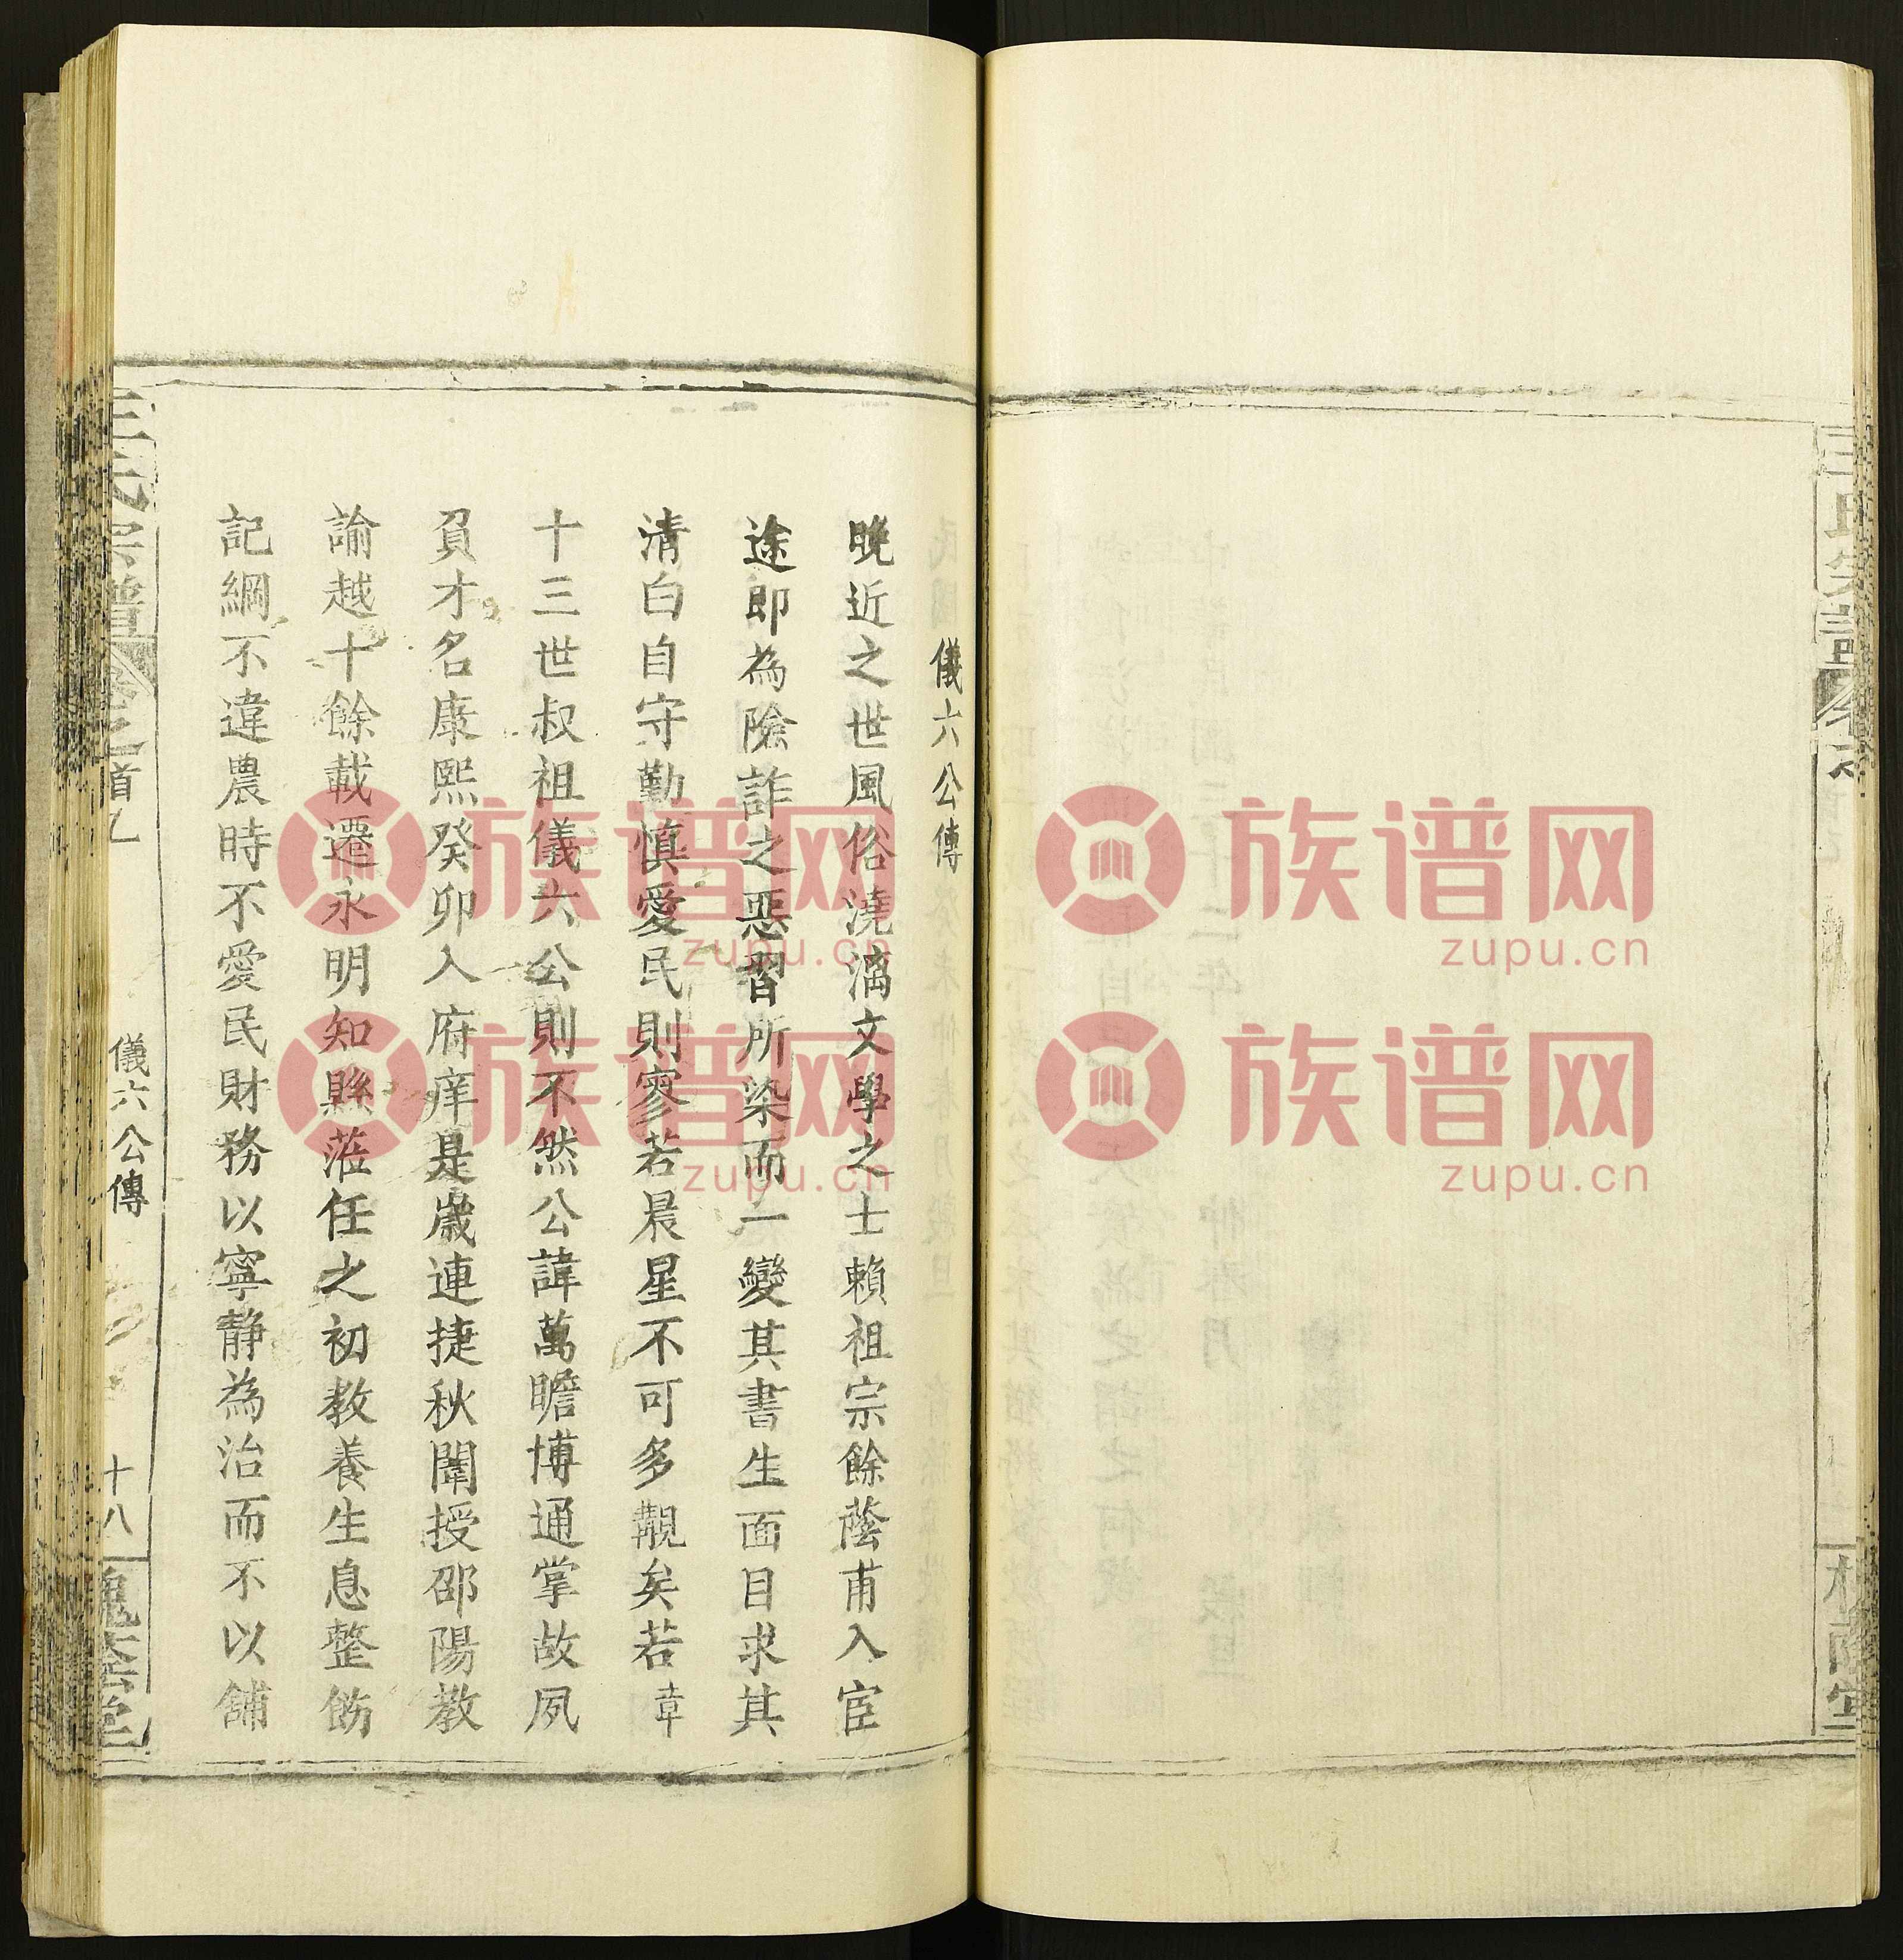 儀六公傳
晚近之世風俗澆漓文學之士賴祖宗餘蔭甫入宦
途即為險詐之惡習所染而一變其書生面目求其
清白自守勤慎愛民則寥若晨星不可多覯矣若章
十三世叔祖儀六公則不然公諱萬瞻博通掌故夙
負才名康熙癸卯入府庠是歲連捷秋闈授邵陽教
諭越十餘載遷永明知縣蒞任之初教養生息整飭
記綱不違農時不愛民財務以寧靜為治而不以鋪
王氏宗譜
卷之首乙
儀六公傳
十八
槐蔭堂
王氏宗譜
槐蔭堂
族谱网
zupu.cn
族谱网
zupu.cn
族谱网
zupu.cn
族谱网
zupu.cn